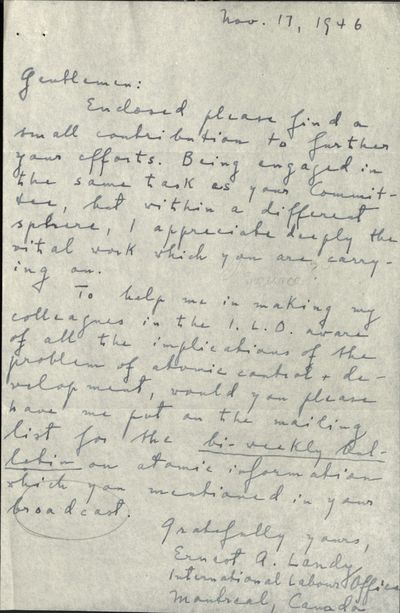 Nov. 17, 1946
Gentlemen:
Enclosed please find a
small contribution to further
your efforts. Being engaged in
the same task as your Commit-
tee, but within a different
sphere, I appreciate deeply the
vital work which you are carry-
ing on.
To help me in making my
colleagues in the I.L.O. aware
of all the implications of the
problem of atomic control + de-
velopment, would you please
have me put on the mailing
list for the bi-weekly bul-
letin on atomic information
which you mentioned in your
broadcast.
Gratefully yours,
Ernest A. Landy
International Labour Office
Montreal, Canada